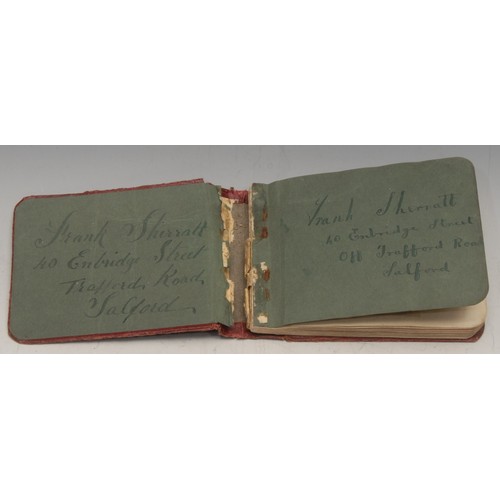 Frank Sherratt
40 Enbridge Street
Trafford Road,
Salford
Frank Sherratt
40 Enbridge Street
Off Trafford Road
Salford